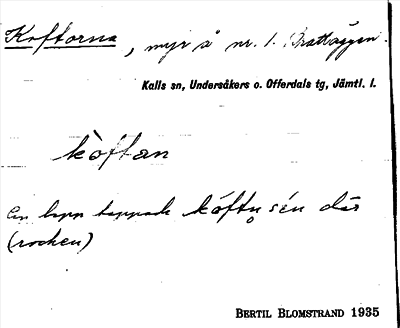 Koftorna, myr å nr. 1. Brattäggen.
Kalls sn, Undersåkers o. Offerdals tg, Jämtl. l.
kòftan
en lapp tappade kóftn̥ sén där
(rocken)
BERTIL BLOMSTRAND 1935